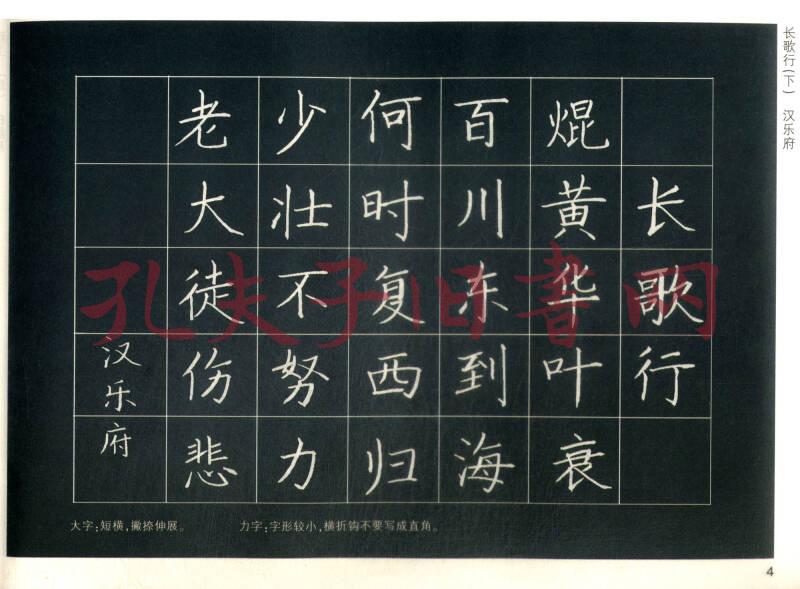 长歌行(下) 汉乐府
长歌行
焜黄华叶衰
百川东到海
何时复西归
少壮不努力
老大徒伤悲
汉乐府
大字:短横,撇捺伸展。
力字:字形较小,横折钩不要写成直角。
4
孔夫子旧书网